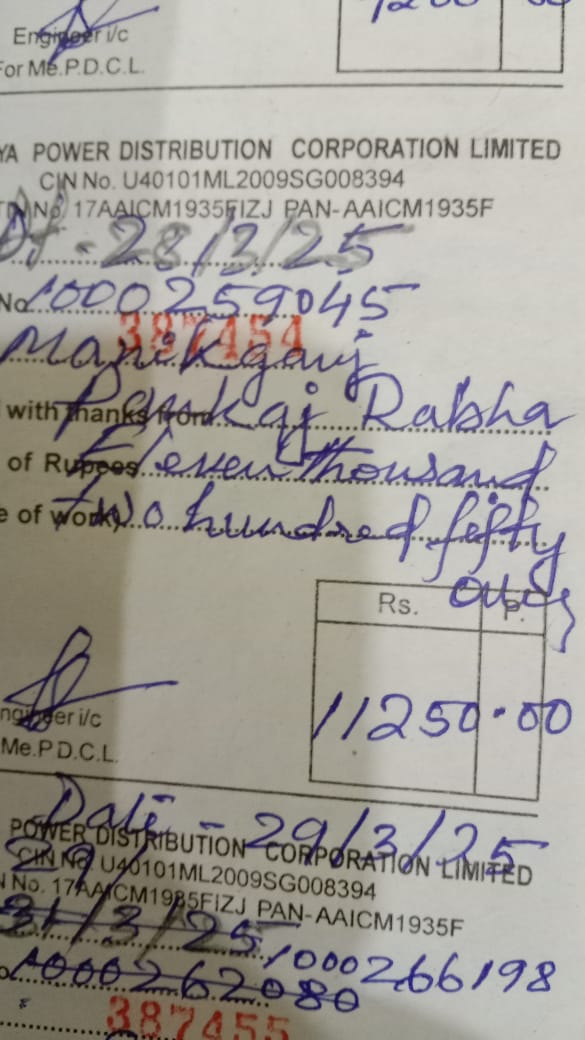 1200 00
Engineer i/c
For Me.P.D.C.L.
YA POWER DISTRIBUTION CORPORATION LIMITED
CIN No. U40101ML2009SG008394
No. 17AAICM1935FIZJ PAN-AAICM1935F
Dt - 28/3/25
No 1000259045
387454
Manikganj
with thanks from Pankaj Rabha
of Rupees Eleven thousand
e of work) Two hundred fifty
only
Rs. P.
11250.00
ngineer i/c
Me.P.D.C.L.
Date - 29/3/25
POWER DISTRIBUTION CORPORATION LIMITED
CIN No. U40101ML2009SG008394
29/
N No. 17AAICM1935FIZJ PAN-AAICM1935F
31/3/25
1000266198
1000262080
387455